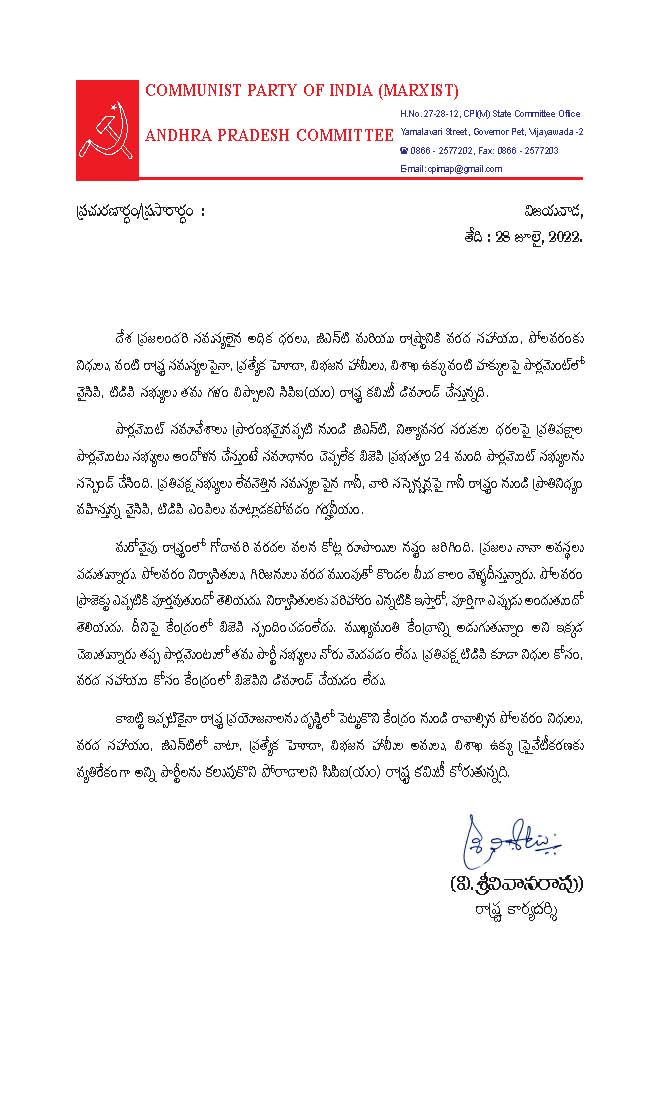 COMMUNIST PARTY OF INDIA (MARXIST)
ANDHRA PRADESH COMMITTEE
H.No. 27-28-12, CPI(M) State Committee Office
Yamalavari Street, Governor Pet, Vijayawada -2
☎ 0866 - 2577202, Fax: 0866 - 2577203
E-mail: cpimap@gmail.com
ప్రచురణార్థం/ప్రసారార్థం :
విజయవాడ,
తేది : 28 జూలై, 2022.
దేశ ప్రజలందరి సమస్యలైన అధిక ధరలు, జిఎస్‌టి మరియు రాష్ట్రానికి వరద సహాయం, పోలవరంకు
నిధులు, వంటి రాష్ట్ర సమస్యలపైనా, ప్రత్యేక హెూదా, విభజన హామీలు, విశాఖ ఉక్కు వంటి హక్కులపై పార్లమెంట్‌లో
వైసిపి, టిడిపి సభ్యులు తమ గళం విప్పాలని సిపిఐ(యం) రాష్ట్ర కమిటీ డిమాండ్ చేస్తున్నది.
పార్లమెంట్ సమావేశాలు ప్రారంభమైనప్పటి నుండి జిఎస్‌టి, నిత్యావసర సరుకుల ధరలపై ప్రతిపక్షాల
పార్లమెంటు సభ్యులు ఆందోళన చేస్తుంటే సమాధానం చెప్పలేక బిజెపి ప్రభుత్వం 24 మంది పార్లమెంట్ సభ్యులను
సస్పెండ్ చేసింది. ప్రతిపక్ష సభ్యులు లేవనెత్తిన సమస్యలపైన గానీ, వారి సస్పెన్షన్లపై గానీ రాష్ట్రం నుండి ప్రాతినిధ్యం
వహిస్తున్న వైసిపి, టిడిపి ఎంపిలు మాట్లాడకపోవడం గర్హనీయం.
మరోవైపు రాష్ట్రంలో గోదావరి వరదల వలన కోట్ల రూపాయల నష్టం జరిగింది. ప్రజలు నానా అవస్థలు
పడుతున్నారు. పోలవరం నిర్వాసితులు, గిరిజనులు వరద ముంపుతో కొండల మీద కాలం వెళ్ళదీస్తున్నారు. పోలవరం
ప్రాజెక్టు ఎప్పటికి పూర్తవుతుందో తెలియదు. నిర్వాసితులకు పరిహారం ఎన్నటికి ఇస్తారో, పూర్తిగా ఎప్పుడు అందుతుందో
తెలియదు. దీనిపై కేంద్రంలో బిజెపి స్పందించడంలేదు. ముఖ్యమంతి కేంద్రాన్ని అడుగుతున్నాం అని ఇక్కడ
చెబుతున్నారు తప్ప పార్లమెంటులో తమ పార్టీ సభ్యులు నోరు మెదపడం లేదు. ప్రతిపక్ష టిడిపి కూడా నిధుల కోసం,
వరద సహాయం కోసం కేంద్రంలో బిజెపిని డిమాండ్ చేయడం లేదు.
కాబట్టి ఇప్పటికైనా రాష్ట్ర ప్రయోజనాలను దృష్టిలో పెట్టుకొని కేంద్రం నుండి రావాల్సిన పోలవరం నిధులు,
వరద సహాయం, జిఎస్‌టిలో వాటా, ప్రత్యేక హెూదా, విభజన హామీల అమలు, విశాఖ ఉక్కు ప్రైవేటీకరణకు
వ్యతిరేకంగా అన్ని పార్టీలను కలుపుకొని పోరాడాలని సిపిఐ(యం) రాష్ట్ర కమిటీ కోరుతున్నది.
(వి. శ్రీనివాసరావు)
రాష్ట్ర కార్యదర్శి